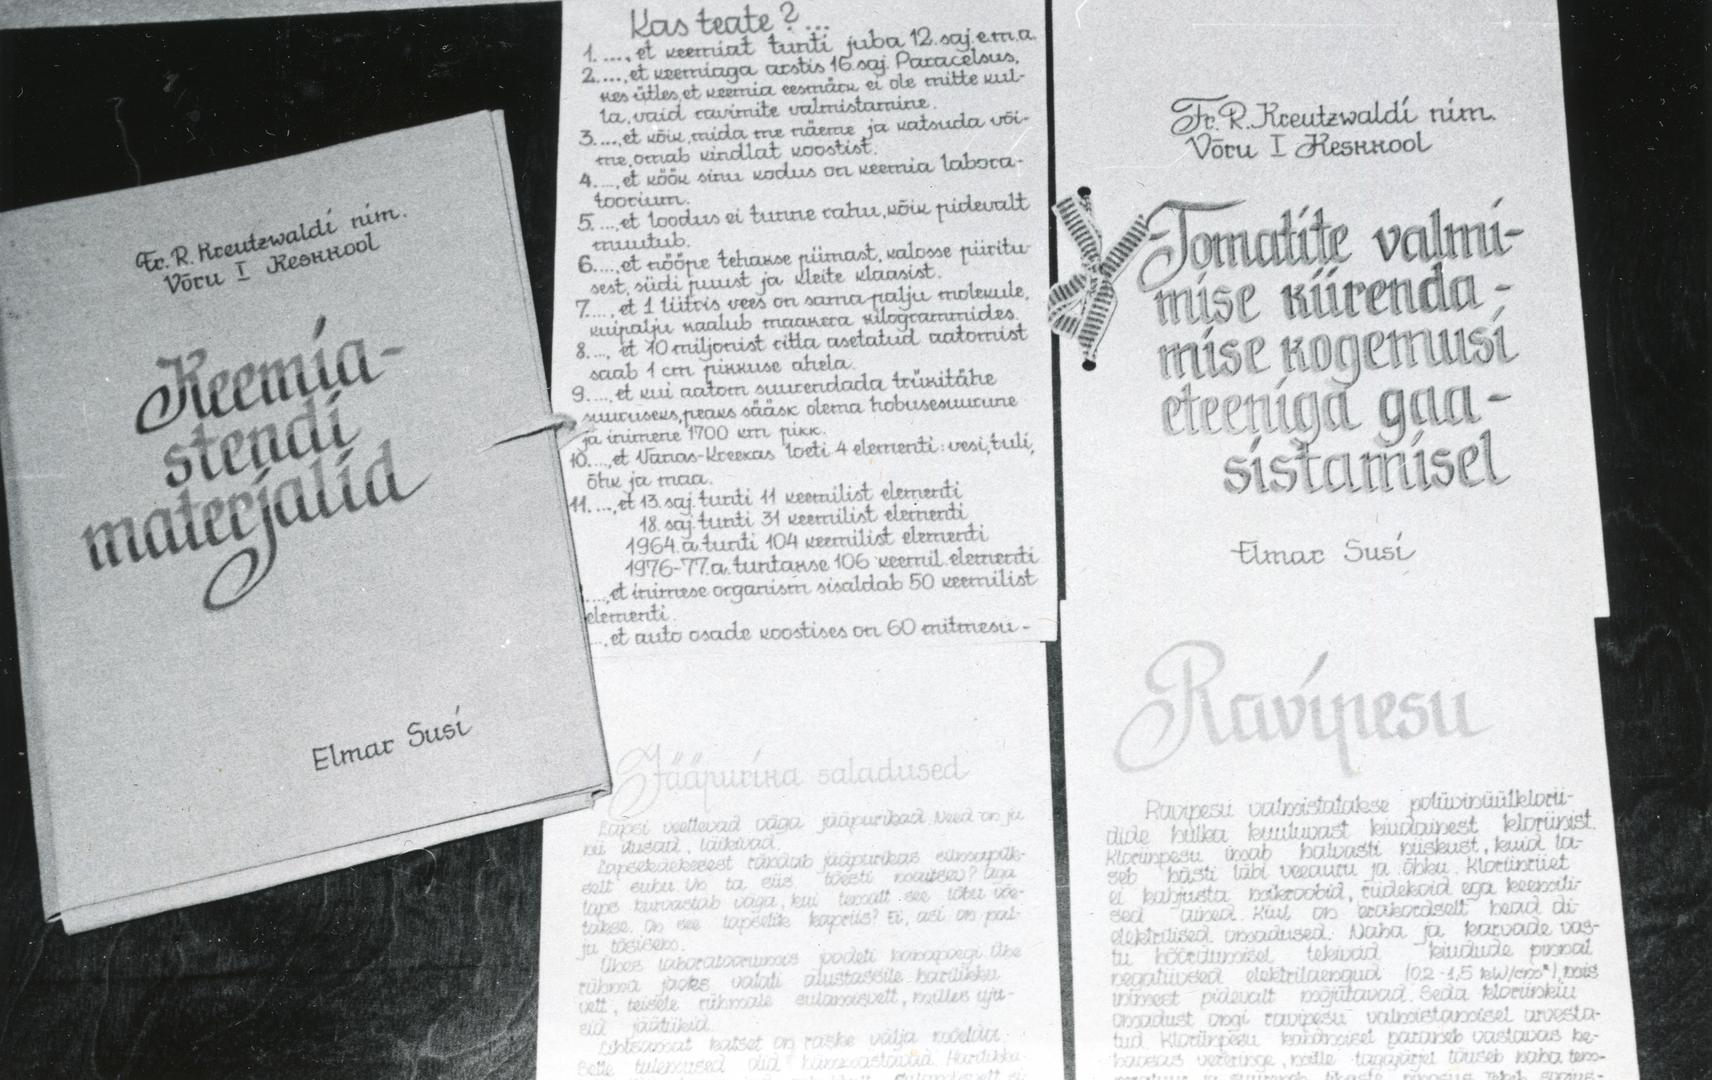 Fr. R. Kreutzwaldi nim.
Võru I Keskkool
Keemia-
stendi
materjalid
Elmar Susi
Kas teate?...
1. ...., et keemiat tunti juba 12. saj. e.m.a.
2. ...., et keemiaga arstis 16. saj. Paracelsus,
kes ütles, et keemia eesmärk ei ole mitte kul-
la, vaid ravimite valmistamine.
3. ...., et kõik, mida me näeme ja katsuda või-
me, omab kindlat koostist.
4. ...., et köök sinu kodus on keemia labora-
toorium.
5. ...., et loodus ei tunne rahu, kõik pidevalt
muutub.
6. ...., et nööpe tehakse piimast, kalosse piiritu-
sest, siidi puust ja kleite klaasist.
7. ...., et 1 liitris vees on sama palju molekule,
kuipalju kaalub maakera kilogrammides.
8. ..., et 10 miljonist ritta asetatud aatomist
saab 1 cm pikkuse ahela.
9. ...., et kui aatom suurendada trükitähe
suuruseks, peaks sääsk olema hobusesuurune
ja inimene 1700 km pikk.
10. ...., et Vanas-Kreekas loeti 4 elementi: vesi, tuli,
õhk ja maa.
11. ...., et 13. saj. tunti 11 keemilist elementi
18. saj. tunti 31 keemilist elementi
1964. a. tunti 104 keemilist elementi
1976-77. a. tuntakse 106 keemil. elementi
...., et inimese organism sisaldab 50 keemilist
elementi.
..., et auto osade koostises on 60 mitmesu-
Jääpurika saladused
Lapsi veetlevad väga jääpurikad. Need on ju
nii ilusad, läikivad.
Lapsekäekesest rändab jääpurikas silmapilk-
selt suhu. On ta siis tõesti maitsev? Aga
laps kurvastab väga, kui temalt see lõbu võe-
takse. On see lapselik kapriis? Ei, asi on pal-
ju tõsisem.
Ühes laboratooriumis joodeti kanapoegi. Ühe
rühma jaoks valati alustassile harilikku
vett, teisele rühmale sulamisvett, milles uju-
sid jäätükid.
Lihtsamat katset on raske välja mõelda.
Selle tulemused olid hämmastavad. Harilikku
Fr. R. Kreutzwaldi nim.
Võru I Keskkool
Tomatite valmi-
mise kiirenda-
mise kogemusi
eteeniga gaa-
sistamisel
Elmar Susi
Ravipesu
Ravipesu valmistatakse polüvinüülklorii-
dide hulka kuuluvast kiudainest kloriinist.
Kloriinpesu imab halvasti niiskust, kuid la-
seb hästi läbi veeauru ja õhku. Kloriinriiet
ei kahjusta mikroobid, riidekoid ega keemili-
sed ained. Kiul on erakordselt head di-
elektrilised omadused. Naha ja karvade vas-
tu hõõrdumisel tekivad kiudude pinnal
negatiivsed elektrilaengud (0,2-1,5 kW/cm²), mis
inimest pidevalt mõjutavad. Seda kloriinkiu
omadust ongi ravipesu valmistamisel arvesta-
tud. Kloriinpesu kandmisel paraneb vastavas ke-
haosas vereringe, mille tagajärjel tõuseb naha tem-